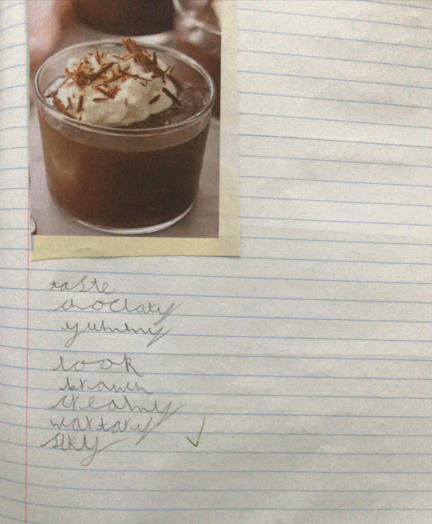 taste
choclaty
yummy
look
brawn
creamy
wartary
silky